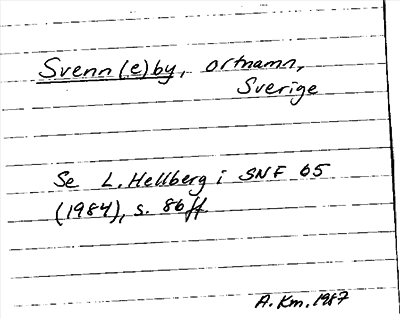 Svenn(e)by, ortnamn,
Sverige
Se L. Hellberg i SNF 65
(1984), s. 86ff.
A. Km. 1987